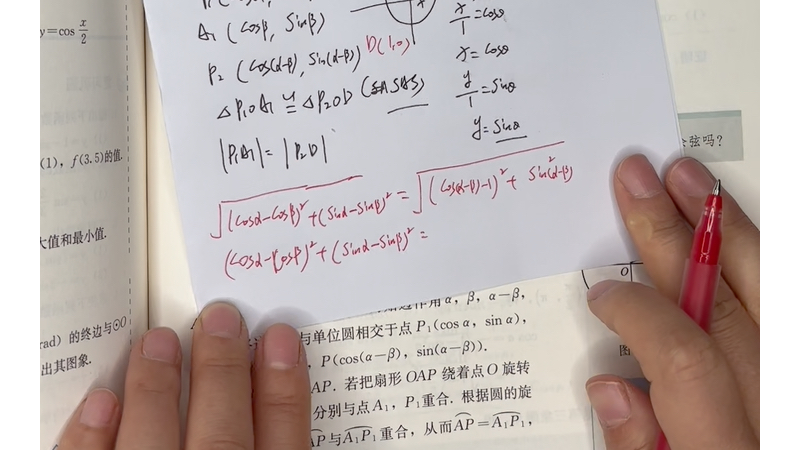 y=cos x/2
(1), f(3.5)的值.
大值和最小值.
rad) 的终边与⊙O
出其图象.
A₁ (cosβ, sinβ)
P₂ (cos(α-β), sin(α-β)) D(1,0)
△P₁OA₁ ≅ △P₂OD (SAS)
|P₁A₁| = |P₂D|
x/1 = cosθ
x = cosθ
y/1 = sinθ
y = sinθ
√((cosα-cosβ)² + (sinα-sinβ)²) = √((cos(α-β)-1)² + sin²(α-β))
(cosα-cosβ)² + (sinα-sinβ)² =
弦吗?
作用 α, β, α-β,
与单位圆相交于点 P₁(cos α, sin α),
P(cos(α-β), sin(α-β)).
AP. 若把扇形 OAP 绕着点 O 旋转
分别与点 A₁, P₁重合. 根据圆的旋
AP与A₁P₁重合, 从而AP=A₁P₁,
O
图